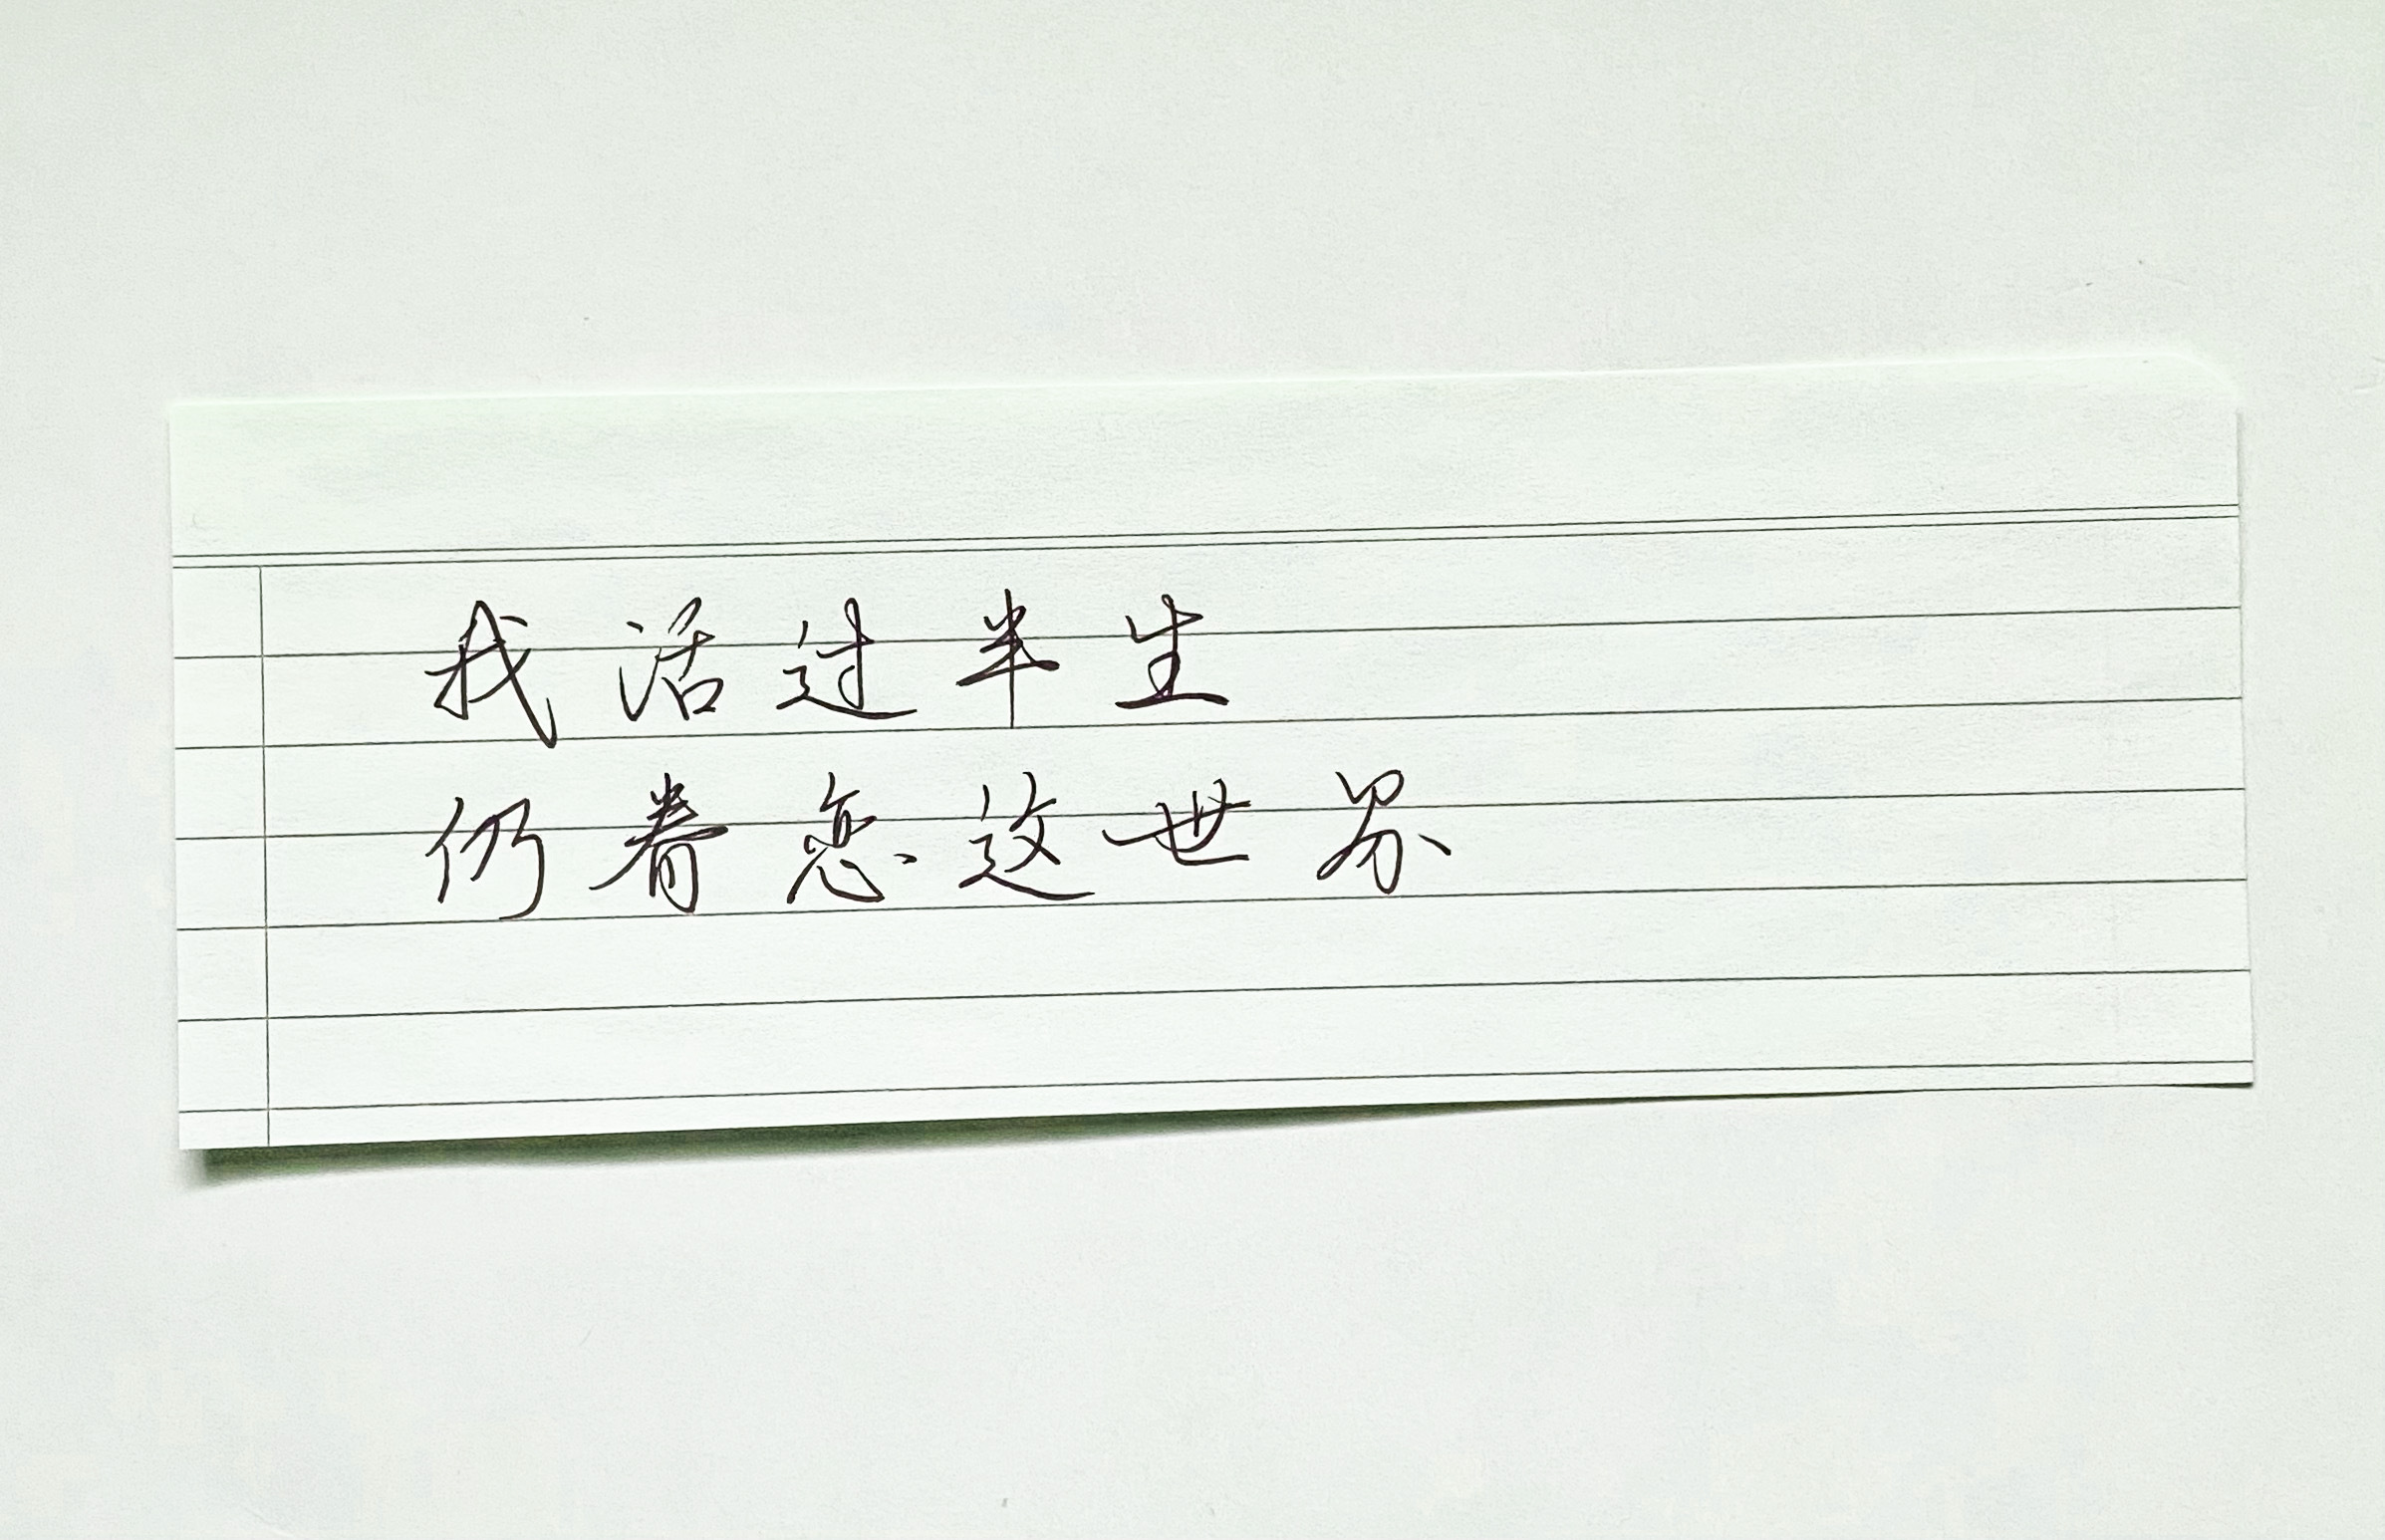 我活过半生
仍眷恋这世界